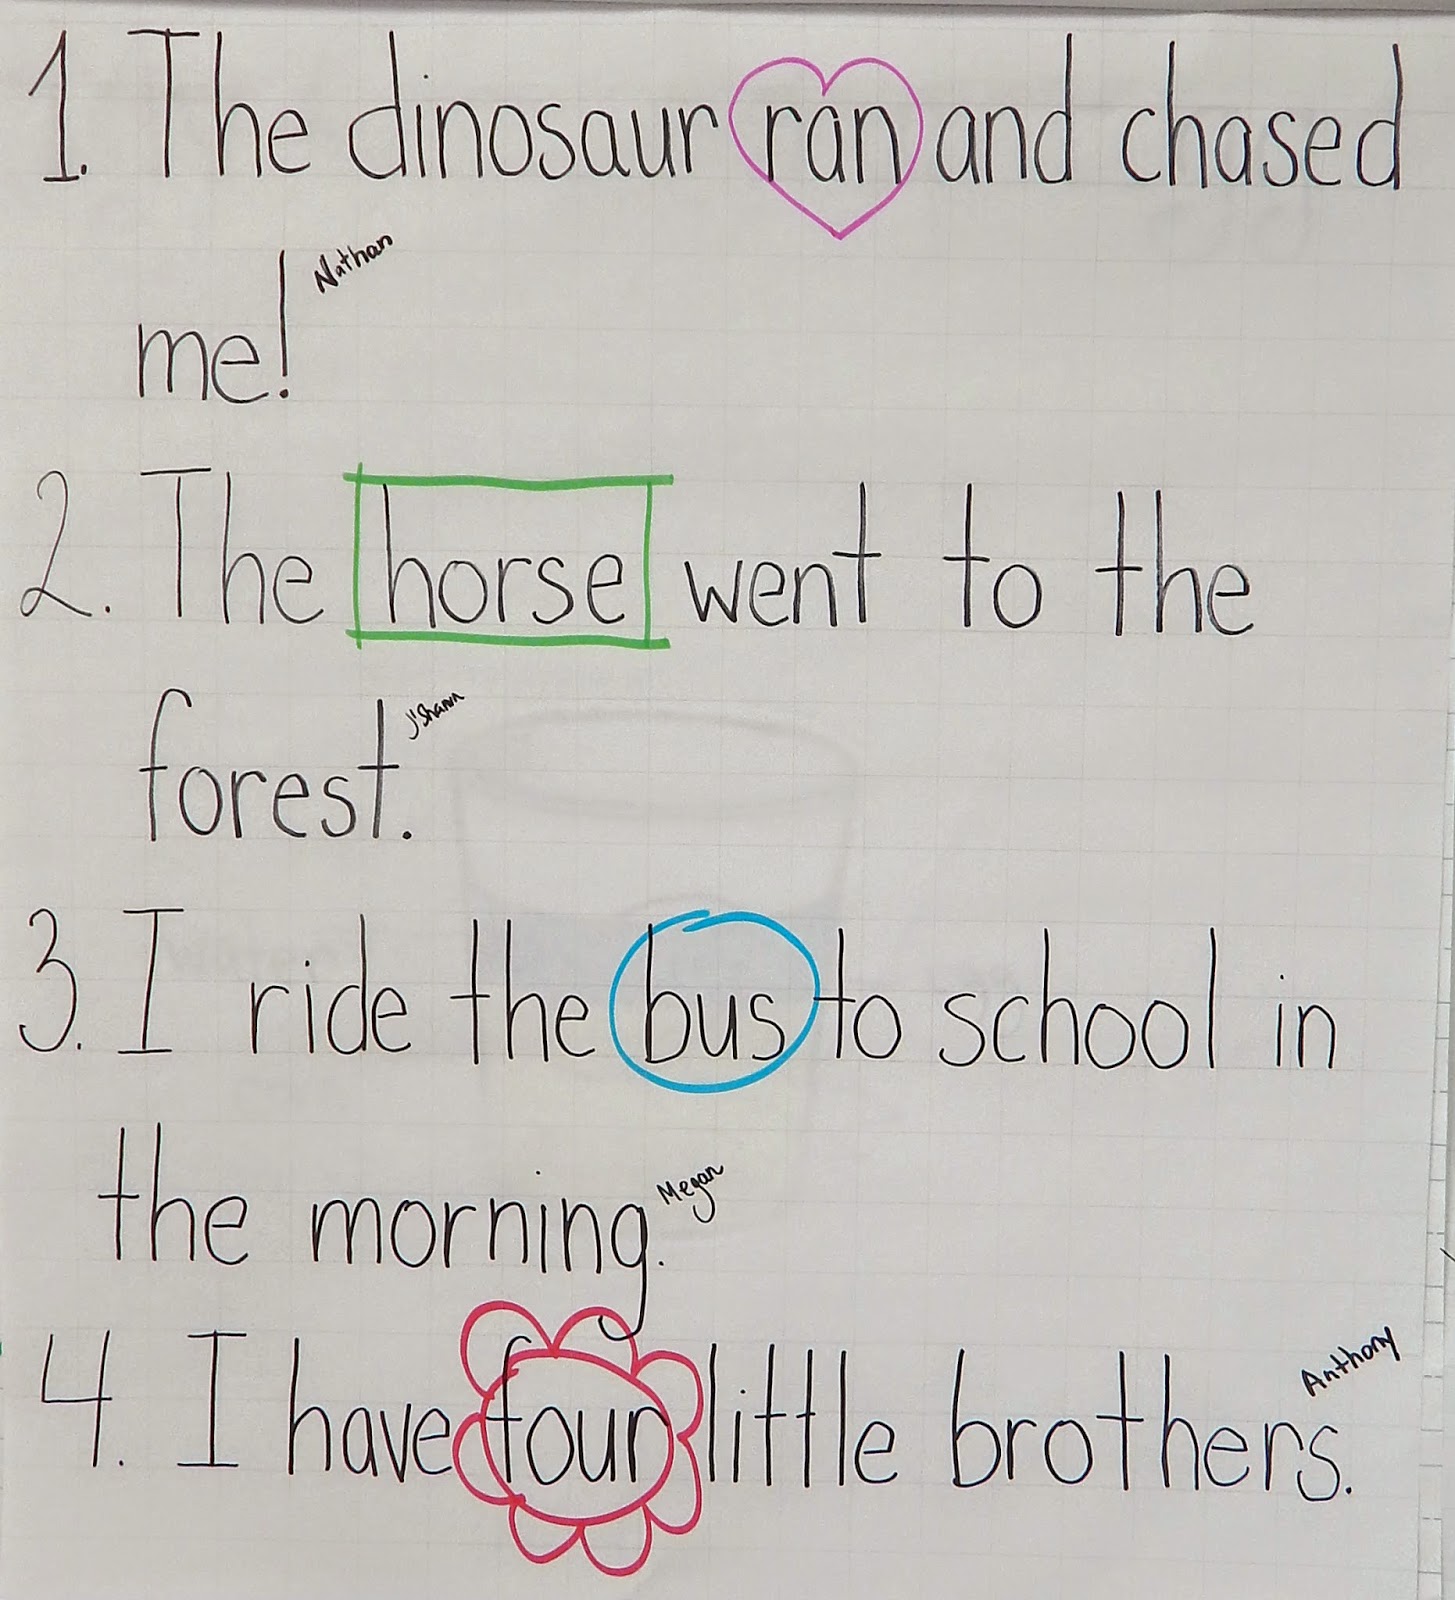 1. The dinosaur ran and chased
me! Nathan
2. The horse went to the
forest. J'Shawn
3. I ride the bus to school in
the morning. Megan
4. I have four little brothers. Anthony